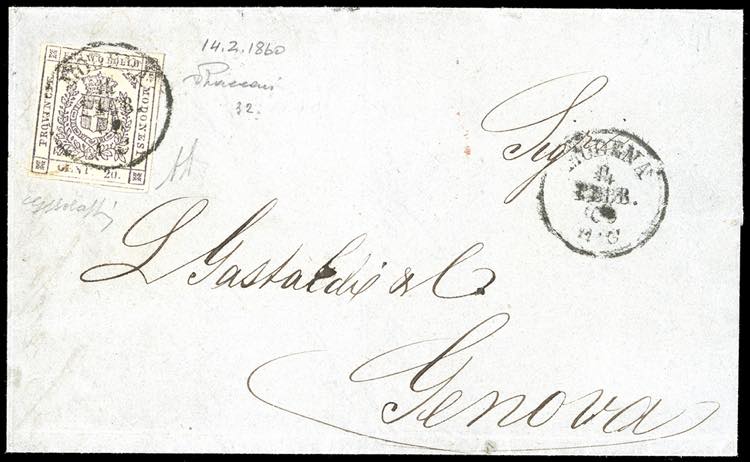 14.2.1860
32.
FRANCO BOLLO
PROVINCIE
MODONESI
CENT 20.
Sig
MODENA
14
FEBB.
60
L Gastaldi & C.
Genova